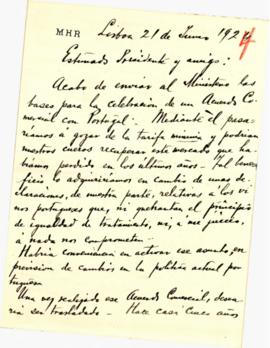 MHR Lisboa 21 de Junio 1924
Estimado Presidente y amigo:
Acabo de enviar al Ministerio las
bases para la celebracion de un Acuerdo Co-
mercial con Portugal. Mediante él pasa-
ríamos a gozar de la tarifa minima y podrian
nuestros cueros recuperar este mercado que ha-
bíamos perdido en los ultimos años. Tal bene-
ficio lo adquiriríamos en cambio de unas de-
claraciones, de nuestra parte, relativas á los vi-
nos portugueses que, ni quebrantan el principio
de igualdad de tratamiento, ni, á mi juicio,
á nada nos comprometen.
Habria conveniencia en activar ese asunto, en
prevision de cambios en la politica actual por-
tuguesa.
Una vez realizado ese Acuerdo Comercial, desea-
ria ser trasladado. Hace casi cinco años